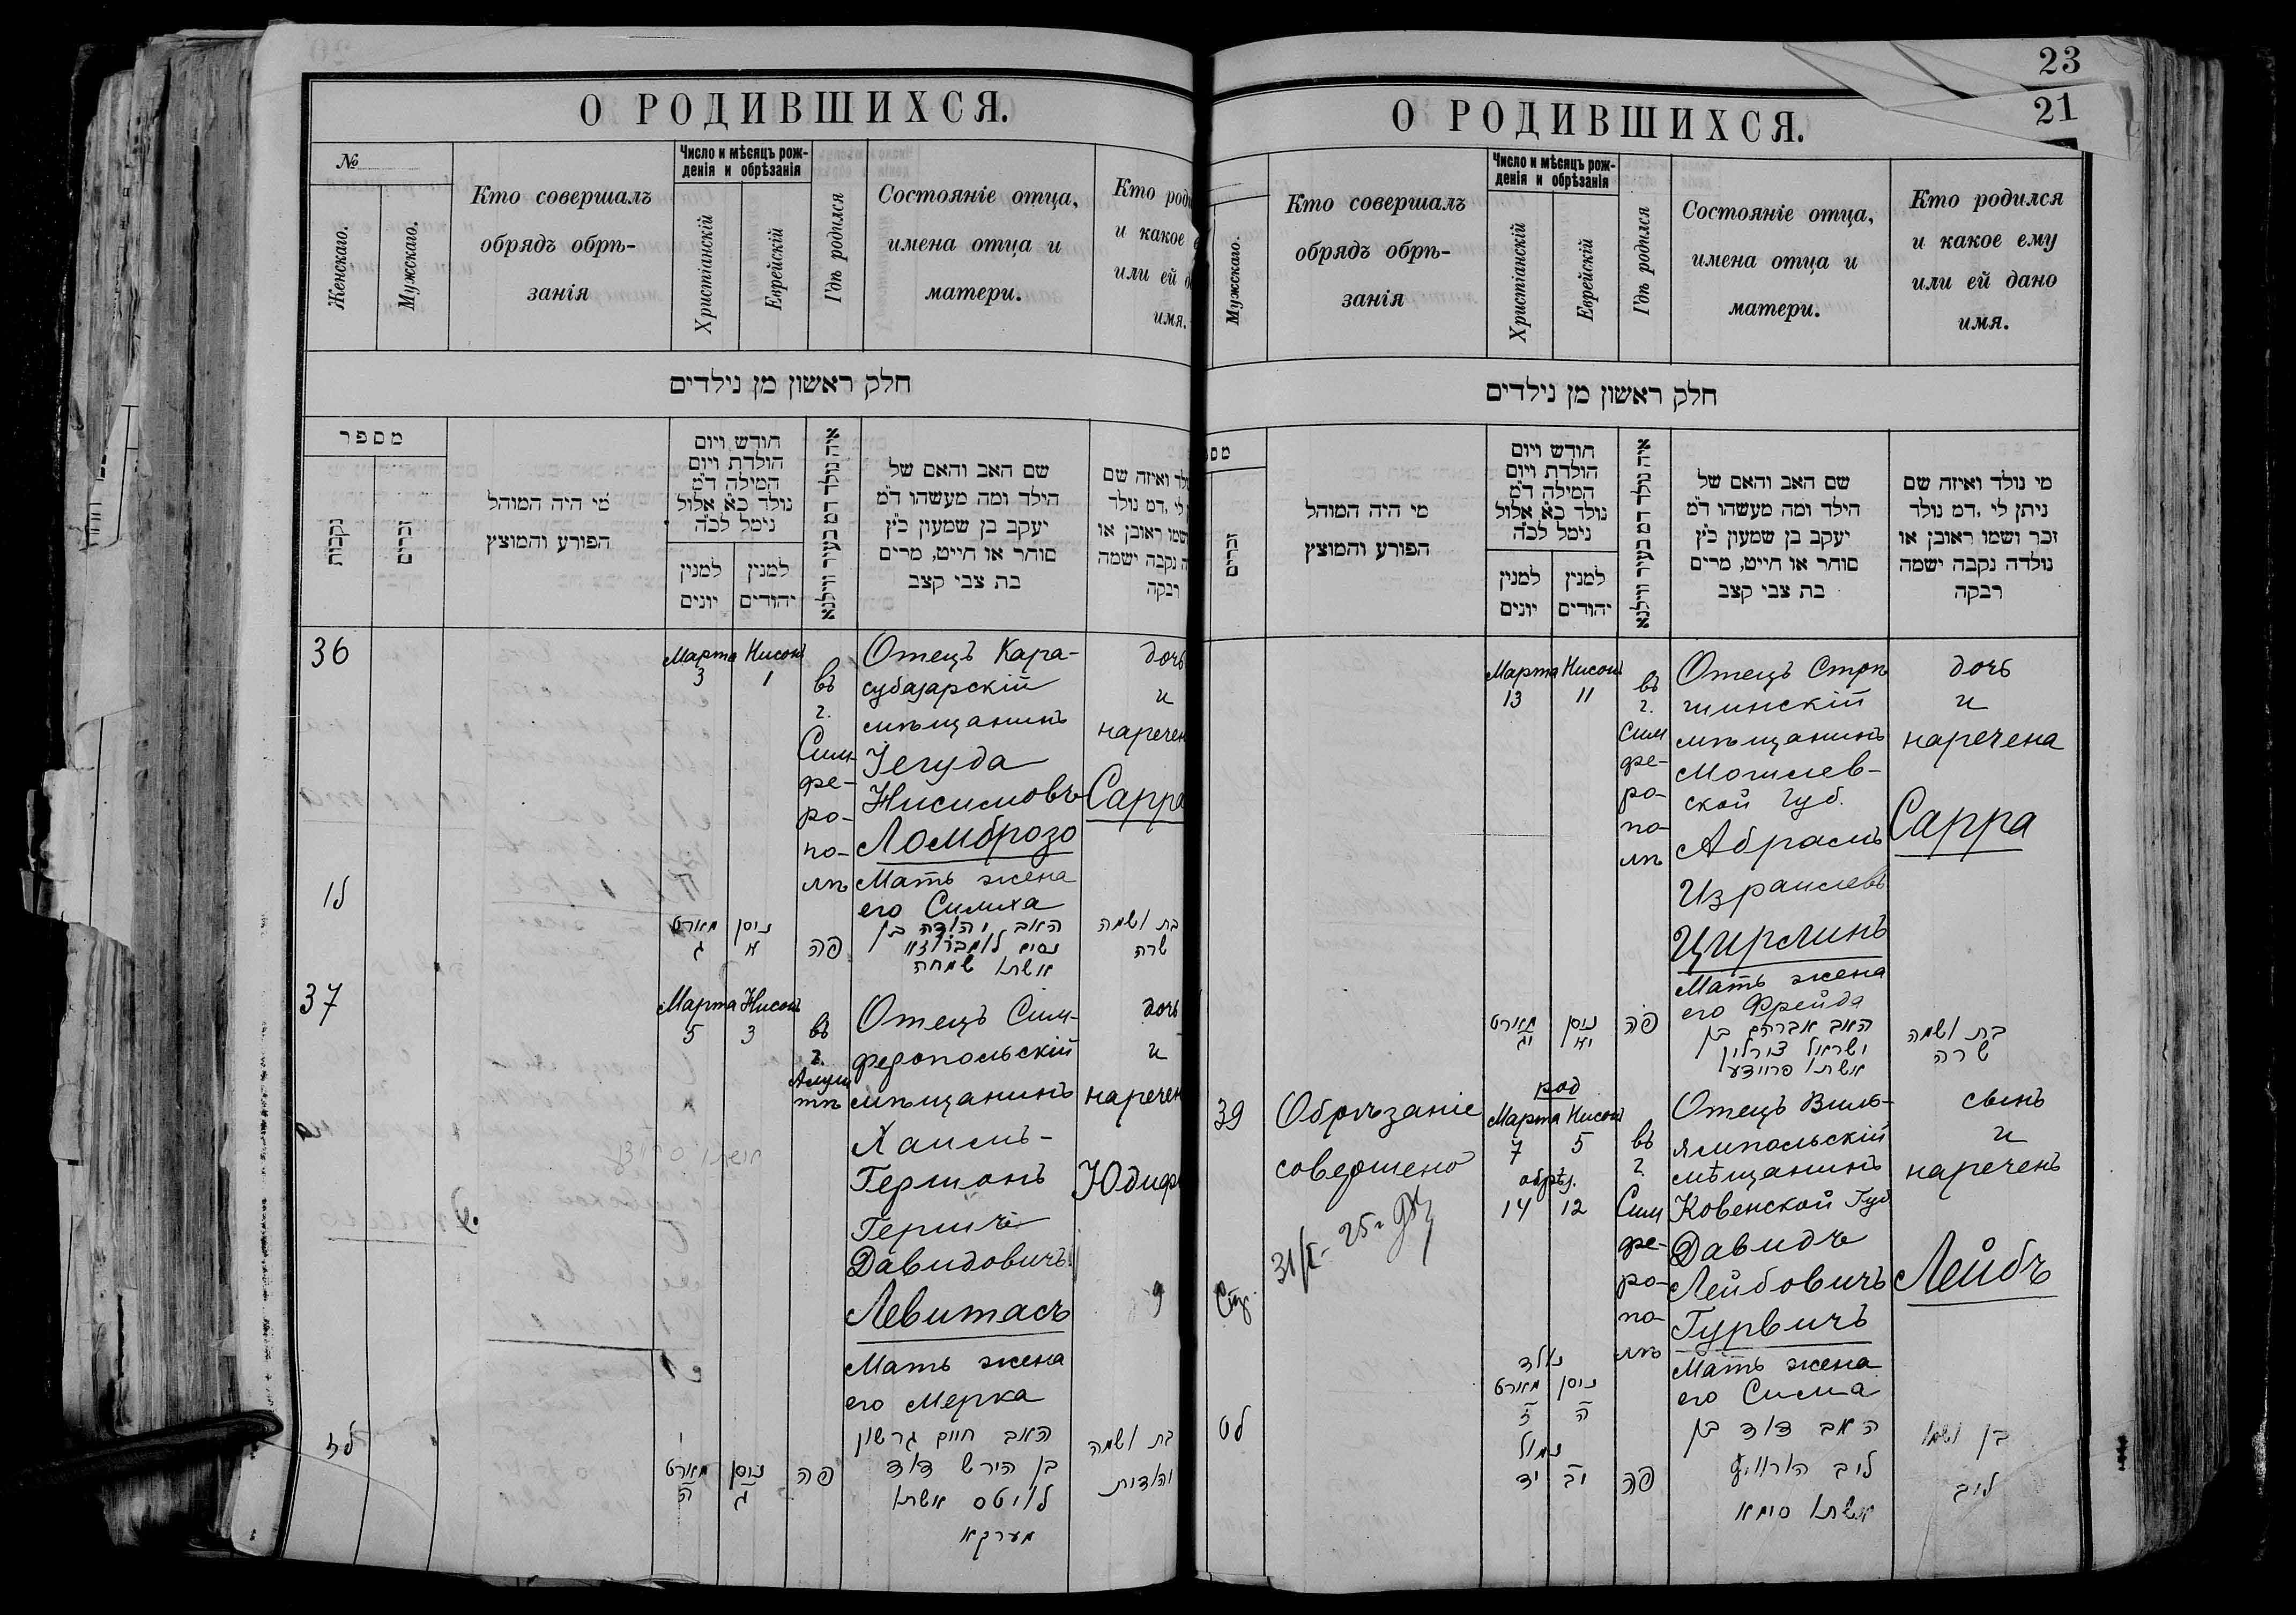 О РОДИВШИХСЯ.
№
Женскаго.
Мужскаго.
Кто совершалъ
обрядъ обрѣ-
занія
Число и мѣсяцъ рож-
денія и обрѣзанія
Христіанскій
Еврейскій
Гдѣ родился
Состояніе отца,
имена отца и
матери.
Кто роди
и какое е
или ей д
имя.
חלק ראשון מן נילדים
מספר
נקבות
זכרים
מי היה המוהל
הפורע והמוצץ
חודש ויום
הולדת ויום
המילה ד"מ
נולד כ"א אלול
נימל לכ"ה
למנין
יונים
למנין
יהודים
איה נולד דמ בעיר ווילנא
שם האב והאם של
הילד ומה מעשהו ד"מ
יעקב בן שמעון כ"ץ
סוחר או חייט, מרים
בת צבי קצב
לד ואיזה שם
לי, דמ נולד
שמו ראובן או
ה נקבה ישמה
רבקה
36
Марта
3
Нисонъ
1
въ
г.
Сим-
фе-
ро-
по-
лѣ
Отецъ Кара-
субазарскій
мѣщанинъ
Іегуда
Нисимовъ
Ломброзо
Мать жена
его Симиха
дочь
и
наречен
Сарра
לו
מארט
ג
ניסן
א
פה
האב יהודה בן
נסים לומברוזא
אשתו שמחה
בת ושמה
שרה
37
Марта
5
Нисонъ
3
въ
г.
Алуш
тѣ
Отецъ Сим-
феропольскій
мѣщанинъ
Хаимъ-
Гершонъ
Гершъ
Давидовичъ
Левитасъ
Мать жена
его Мерка
дочь
и
наречен
Юдифь
לז
מארט
ה
ניסן
ג
פה
האב חיים גרשון
בן הירש דוד
לויטס אשתו
מערקא
בת ושמה
יהודית
23
21
О РОДИВШИХСЯ.
Мужскаго.
Кто совершалъ
обрядъ обрѣ-
занія
Число и мѣсяцъ рож-
денія и обрѣзанія
Христіанскій
Еврейскій
Гдѣ родился
Состояніе отца,
имена отца и
матери.
Кто родился
и какое ему
или ей дано
имя.
חלק ראשון מן נילדים
מס
זכרים
מי היה המוהל
הפורע והמוצץ
חודש ויום
הולדת ויום
המילה ד"מ
נולד כ"א אלול
נימל לכ"ה
למנין
יונים
למנין
יהודים
איה נולד דמ בעיר ווילנא
שם האב והאם של
הילד ומה מעשהו ד"מ
יעקב בן שמעון כ"ץ
סוחר או חייט, מרים
בת צבי קצב
מי נולד ואיזה שם
ניתן לי, דמ נולד
זכר ושמו ראובן או
נולדה נקבה ישמה
רבקה
Марта
13
Нисонъ
11
въ
г.
Сим
фе-
ро-
по-
лѣ
Отецъ Стрѣ
шинскій
мѣщанинъ
Могилев-
ской губ.
Абрамъ
Израилевъ
Цирлинъ
Мать жена
его Фрейда
дочь
и
наречена
Сарра
מארט
יג
ניסן
יא
פה
האב אברהם בן
ישראל צירלין
אשתו פריידע
בת ושמה
שרה
39
Обрѣзаніе
совершено
31/I- 25 г
Стр.
род
Марта
7
Нисонъ
5
обрѣз.
14
12
въ
г.
Сим
фе-
ро-
по-
лѣ
Отецъ Виль-
ямпольскій
мѣщанинъ
Ковенской Губ
Давидъ
Лейбовичъ
Гурвичъ
Мать жена
его Сима
сынъ
и
нареченъ
Лейбъ
לט
נולד
מארט
ז
ניסן
ה
נמול
יד
יב
פה
האב דוד בן
ליב הורוויץ
אשתו סימא
בן ושמו
ליב